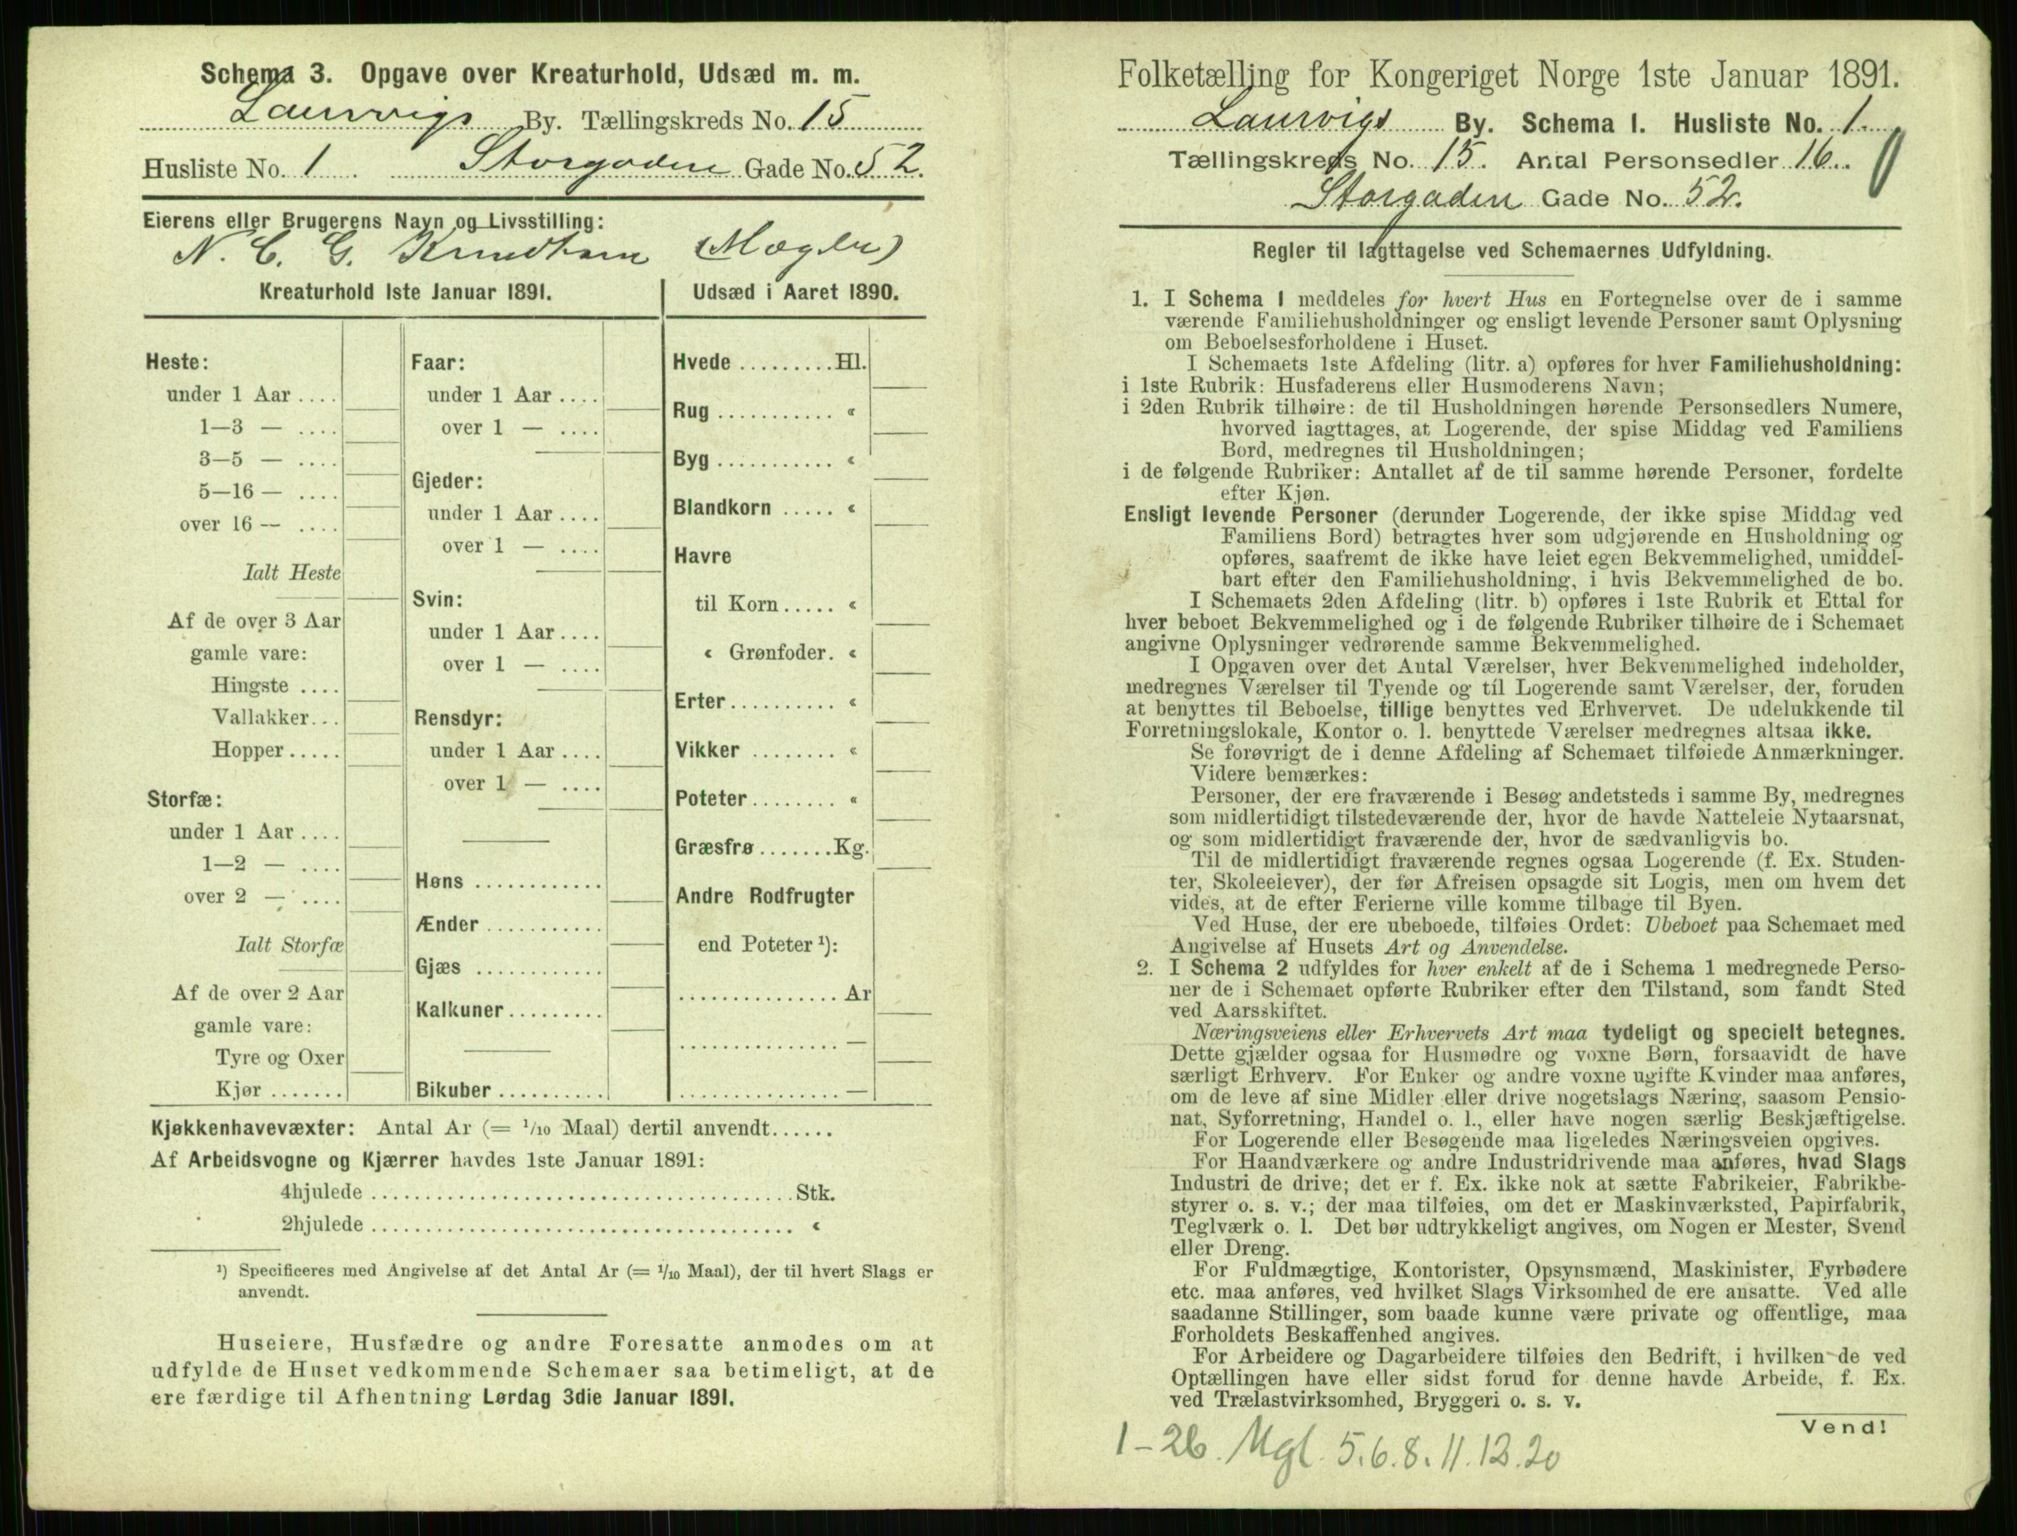 Schema 3. Opgave over Kreaturhold, Udsæd m. m.
Laurvigs By. Tællingskreds No. 15
Husliste No. 1 Storgaden Gade No. 52.
Eierens eller Brugerens Navn og Livsstilling:
N. C. G. Knudtsen (Mægler)
Kreaturhold 1ste Januar 1891.
Heste:
under 1 Aar ....
1—3 — ....
3—5 — ....
5—16 — ....
over 16 — ....
Ialt Heste
Af de over 3 Aar
gamle vare:
Hingste ....
Vallakker...
Hopper.....
Storfæ:
under 1 Aar ....
1—2 — ....
over 2 — ....
Ialt Storfæ
Af de over 2 Aar
gamle vare:
Tyre og Oxer
Kjør .......
Faar:
under 1 Aar ....
over 1 — ....
Gjeder:
under 1 Aar ....
over 1 — ....
Svin:
under 1 Aar ....
over 1 — ....
Rensdyr:
under 1 Aar ....
over 1 — ....
Høns ............
Ænder ...........
Gjæs ............
Kalkuner.........
Bikuber ..........
Udsæd i Aaret 1890.
Hvede .........Hl.
Rug ........... «
Byg ........... «
Blandkorn ..... «
Havre
til Korn..... «
« Grønfoder. «
Erter.......... «
Vikker ........ «
Poteter........ «
Græsfrø.......Kg.
Andre Rodfrugter
end Poteter ¹):
............... Ar
............... —
............... —
Kjøkkenhavevæxter: Antal Ar (= 1/10 Maal) dertil anvendt......
Af Arbeidsvogne og Kjærrer havdes 1ste Januar 1891:
4hjulede ....................................... Stk.
2hjulede ....................................... «
¹) Specificeres med Angivelse af det Antal Ar (= 1/10 Maal), der til hvert Slags er
anvendt.
Huseiere, Husfædre og andre Foresatte anmodes om at
udfylde de Huset vedkommende Schemaer saa betimeligt, at de
ere færdige til Afhentning Lørdag 3die Januar 1891.
Folketælling for Kongeriget Norge 1ste Januar 1891.
Laurvigs By. Schema 1. Husliste No. 1.
Tællingskreds No. 15. Antal Personsedler 16.
Storgaden Gade No. 52.
Regler til Iagttagelse ved Schemaernes Udfyldning.
1. I Schema 1 meddeles for hvert Hus en Fortegnelse over de i samme
værende Familiehusholdninger og ensligt levende Personer samt Oplysning
om Beboelsesforholdene i Huset.
I Schemaets 1ste Afdeling (litr. a) opføres for hver Familiehusholdning:
i 1ste Rubrik: Husfaderens eller Husmoderens Navn;
i 2den Rubrik tilhøire: de til Husholdningen hørende Personsedlers Numere,
hvorved iagttages, at Logerende, der spise Middag ved Familiens
Bord, medregnes til Husholdningen;
i de følgende Rubriker: Antallet af de til samme hørende Personer, fordelte
efter Kjøn.
Ensligt levende Personer (derunder Logerende, der ikke spise Middag ved
Familiens Bord) betragtes hver som udgjørende en Husholdning og
opføres, saafremt de ikke have leiet egen Bekvemmelighed, umiddel-
bart efter den Familiehusholdning, i hvis Bekvemmelighed de bo.
I Schemaets 2den Afdeling (litr. b) opføres i 1ste Rubrik et Ettal for
hver beboet Bekvemmelighed og i de følgende Rubriker tilhøire de i Schemaet
angivne Oplysninger vedrørende samme Bekvemmelighed.
I Opgaven over det Antal Værelser, hver Bekvemmelighed indeholder,
medregnes Værelser til Tyende og til Logerende samt Værelser, der, foruden
at benyttes til Beboelse, tillige benyttes ved Erhvervet. De udelukkende til
Forretningslokale, Kontor o. l. benyttede Værelser medregnes altsaa ikke.
Se forøvrigt de i denne Afdeling af Schemaet tilføiede Anmærkninger.
Videre bemærkes:
Personer, der ere fraværende i Besøg andetsteds i samme By, medregnes
som midlertidigt tilstedeværende der, hvor de havde Natteleie Nytaarsnat,
og som midlertidigt fraværende der, hvor de sædvanligvis bo.
Til de midlertidigt fraværende regnes ogsaa Logerende (f. Ex. Studen-
ter, Skoleelever), der før Afreisen opsagde sit Logis, men om hvem det
vides, at de efter Ferierne ville komme tilbage til Byen.
Ved Huse, der ere ubeboede, tilføies Ordet: Ubeboet paa Schemaet med
Angivelse af Husets Art og Anvendelse.
2. I Schema 2 udfyldes for hver enkelt af de i Schema 1 medregnede Perso-
ner de i Schemaet opførte Rubriker efter den Tilstand, som fandt Sted
ved Aarsskiftet.
Næringsveiens eller Erhvervets Art maa tydeligt og specielt betegnes.
Dette gjælder ogsaa for Husmødre og voxne Børn, forsaavidt de have
særligt Erhverv. For Enker og andre voxne ugifte Kvinder maa anføres,
om de leve af sine Midler eller drive nogetslags Næring, saasom Pensio-
nat, Syforretning, Handel o. l., eller have nogen særlig Beskjæftigelse.
For Logerende eller Besøgende maa ligeledes Næringsveien opgives.
For Haandværkere og andre Industridrivende maa anføres, hvad Slags
Industri de drive; det er f. Ex. ikke nok at sætte Fabrikeier, Fabrikbe-
styrer o. s. v.; der maa tilføies, om det er Maskinværksted, Papirfabrik,
Teglværk o. l. Det bør udtrykkeligt angives, om Nogen er Mester, Svend
eller Dreng.
For Fuldmægtige, Kontorister, Opsynsmænd, Maskinister, Fyrbødere
etc. maa anføres, ved hvilket Slags Virksomhed de ere ansatte. Ved alle
saadanne Stillinger, som baade kunne være private og offentlige, maa
Forholdets Beskaffenhed angives.
For Arbeidere og Dagarbeidere tilføies den Bedrift, i hvilken de ved
Optællingen have eller sidst forud for denne havde Arbeide, f. Ex.
ved Trælastvirksomhed, Bryggeri o. s. v.
Vend!
1-26. Mgl. 5.6.8.11.12.20